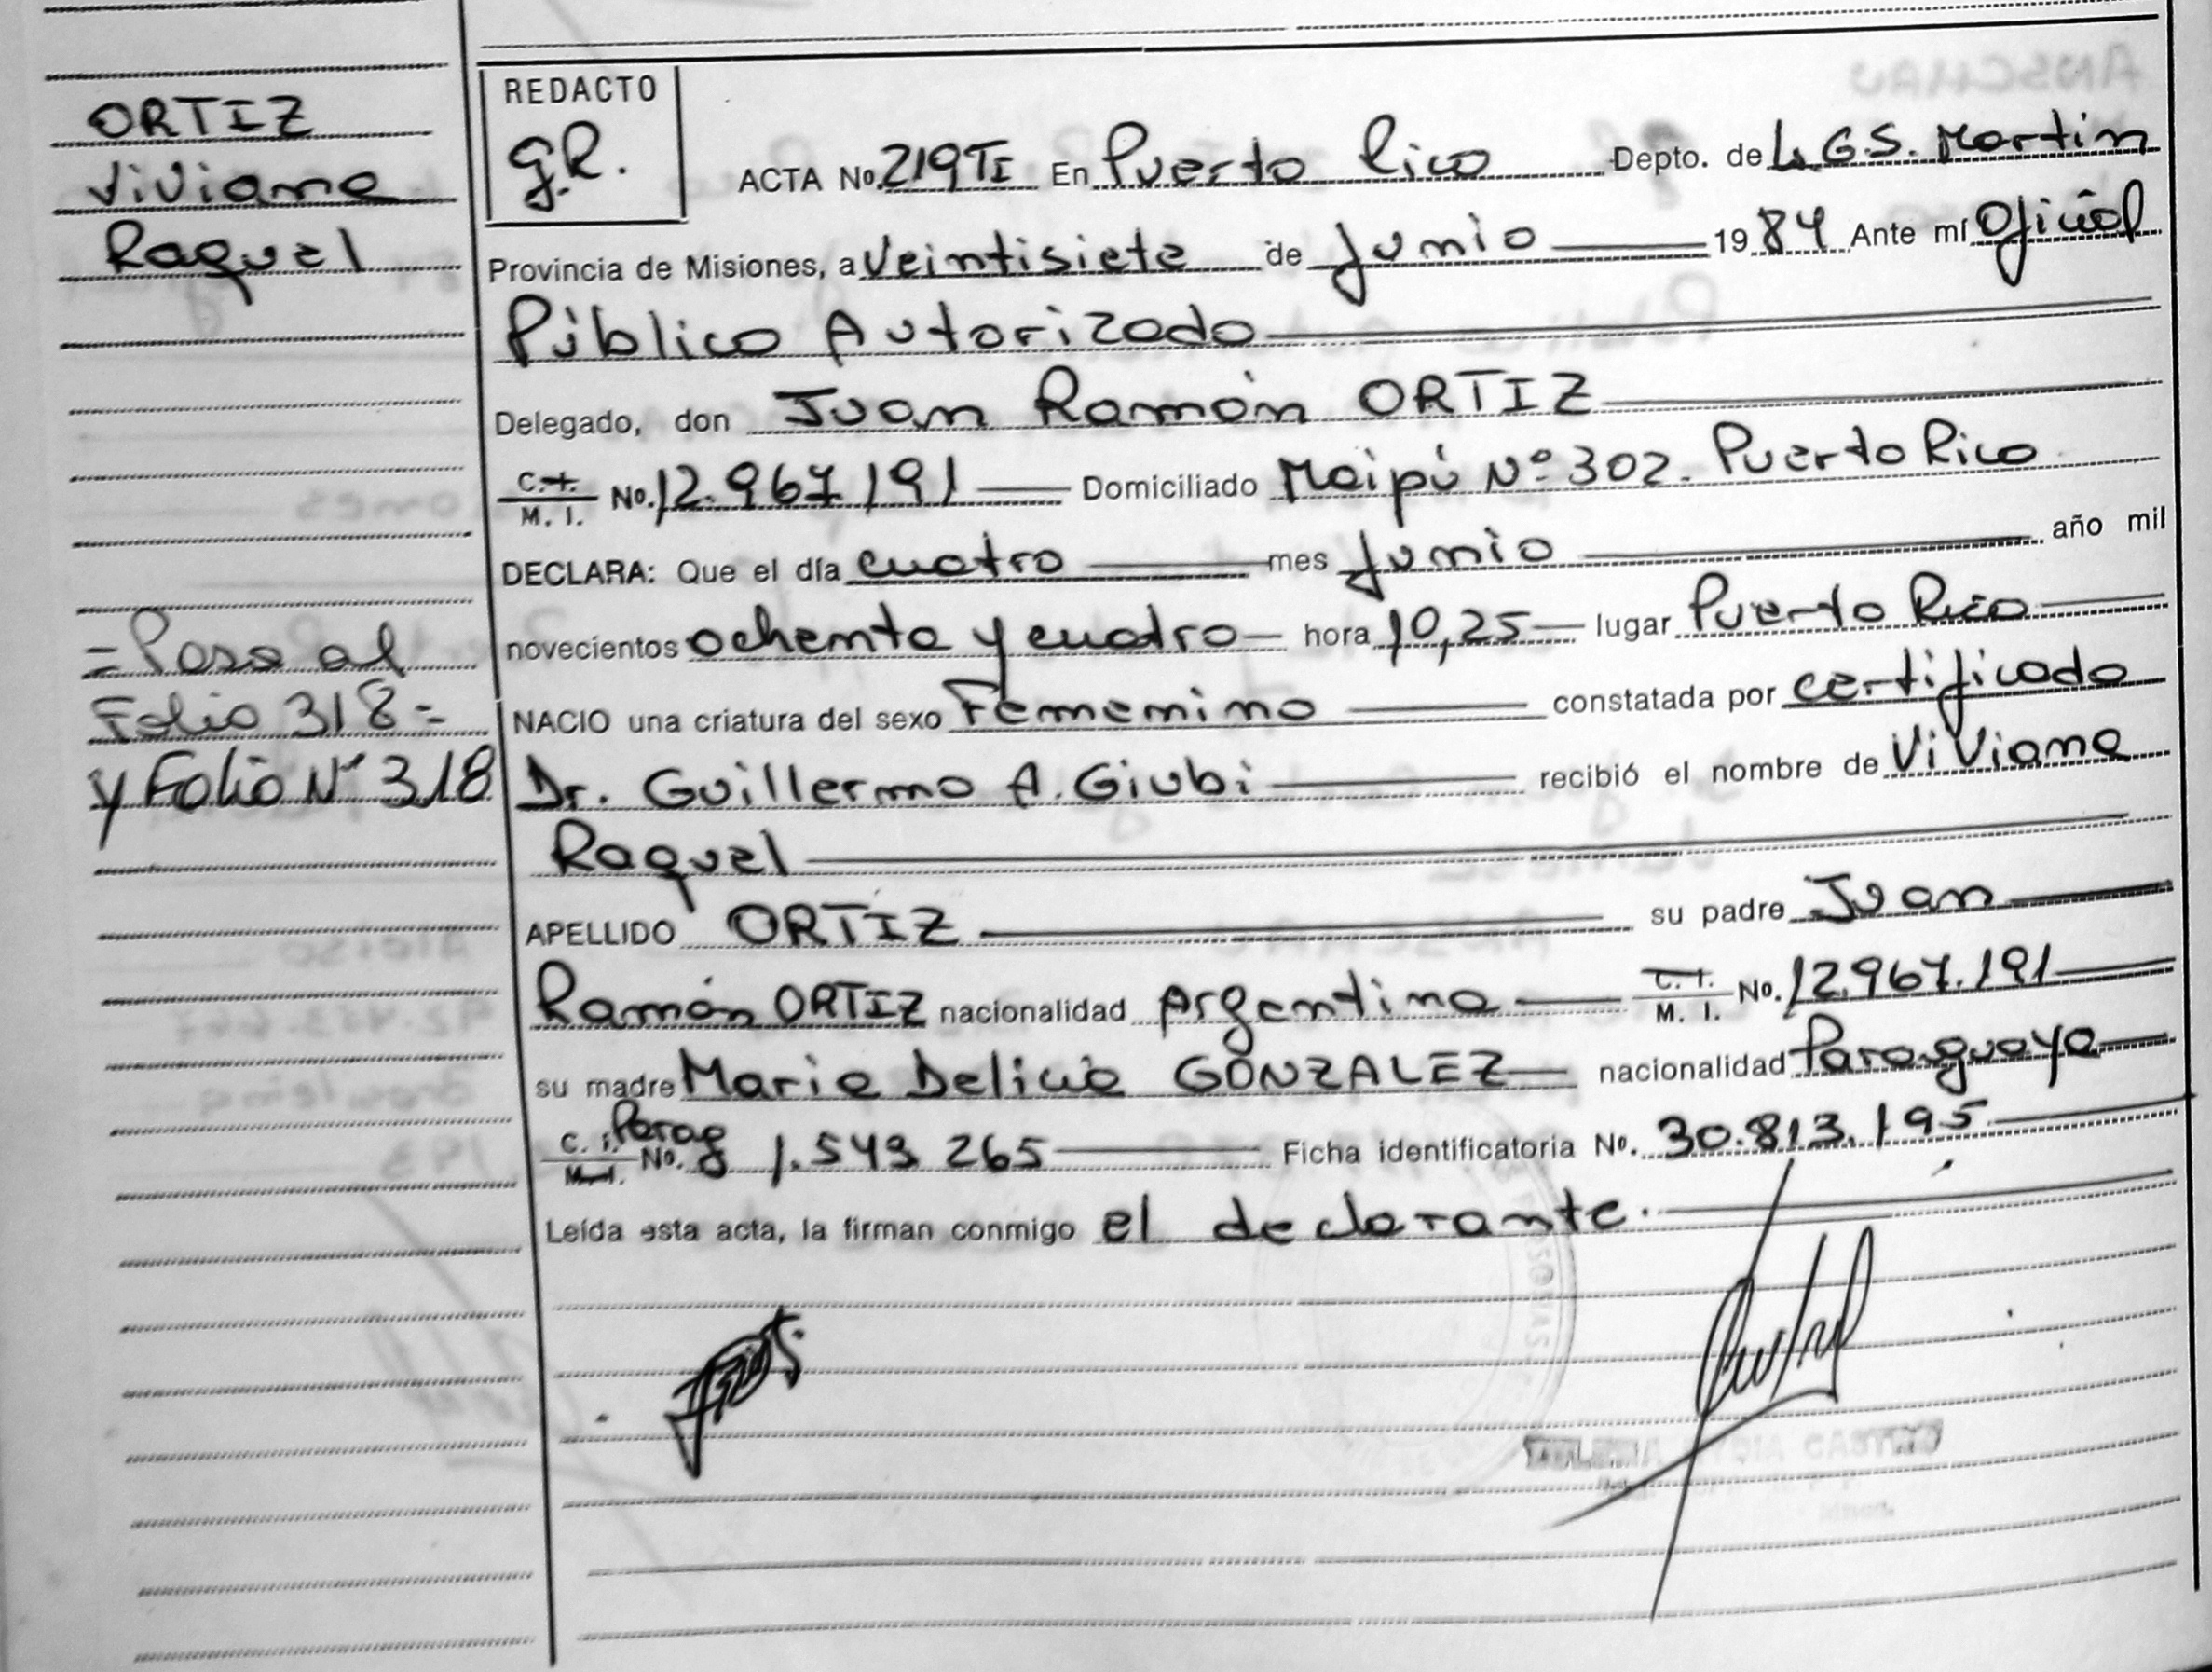 ORTIZ
Viviana
Raquel
= Pasa al
Folio 318 =
y Folio Nº 318
REDACTO
g.R.
ACTA No. 219 TI En Puerto Rico Depto. de L. G.S. Martin
Provincia de Misiones, a Veintisiete de Junio 1984 Ante mí Oficial
Público Autorizado
Delegado, don Juan Ramón ORTIZ
C.I. M. I. No. 12.967.191 Domiciliado Maipú Nº 302. Puerto Rico
DECLARA: Que el día cuatro mes Junio año mil
novecientos ochenta y cuatro hora 10,25 lugar Puerto Rico
NACIO una criatura del sexo Femenino constatada por certificado
Dr. Guillermo A. Giubi recibió el nombre de Viviana
Raquel
APELLIDO ORTIZ su padre Juan
Ramón ORTIZ nacionalidad Argentina C.I. M. I. No. 12.967.191
su madre Maria Delicia GONZALEZ nacionalidad Paraguaya
C. I. M.I. No. Parag 1.543.265 Ficha identificatoria No. 30.813.195
Leída esta acta, la firman conmigo el declarante.
CASTRO